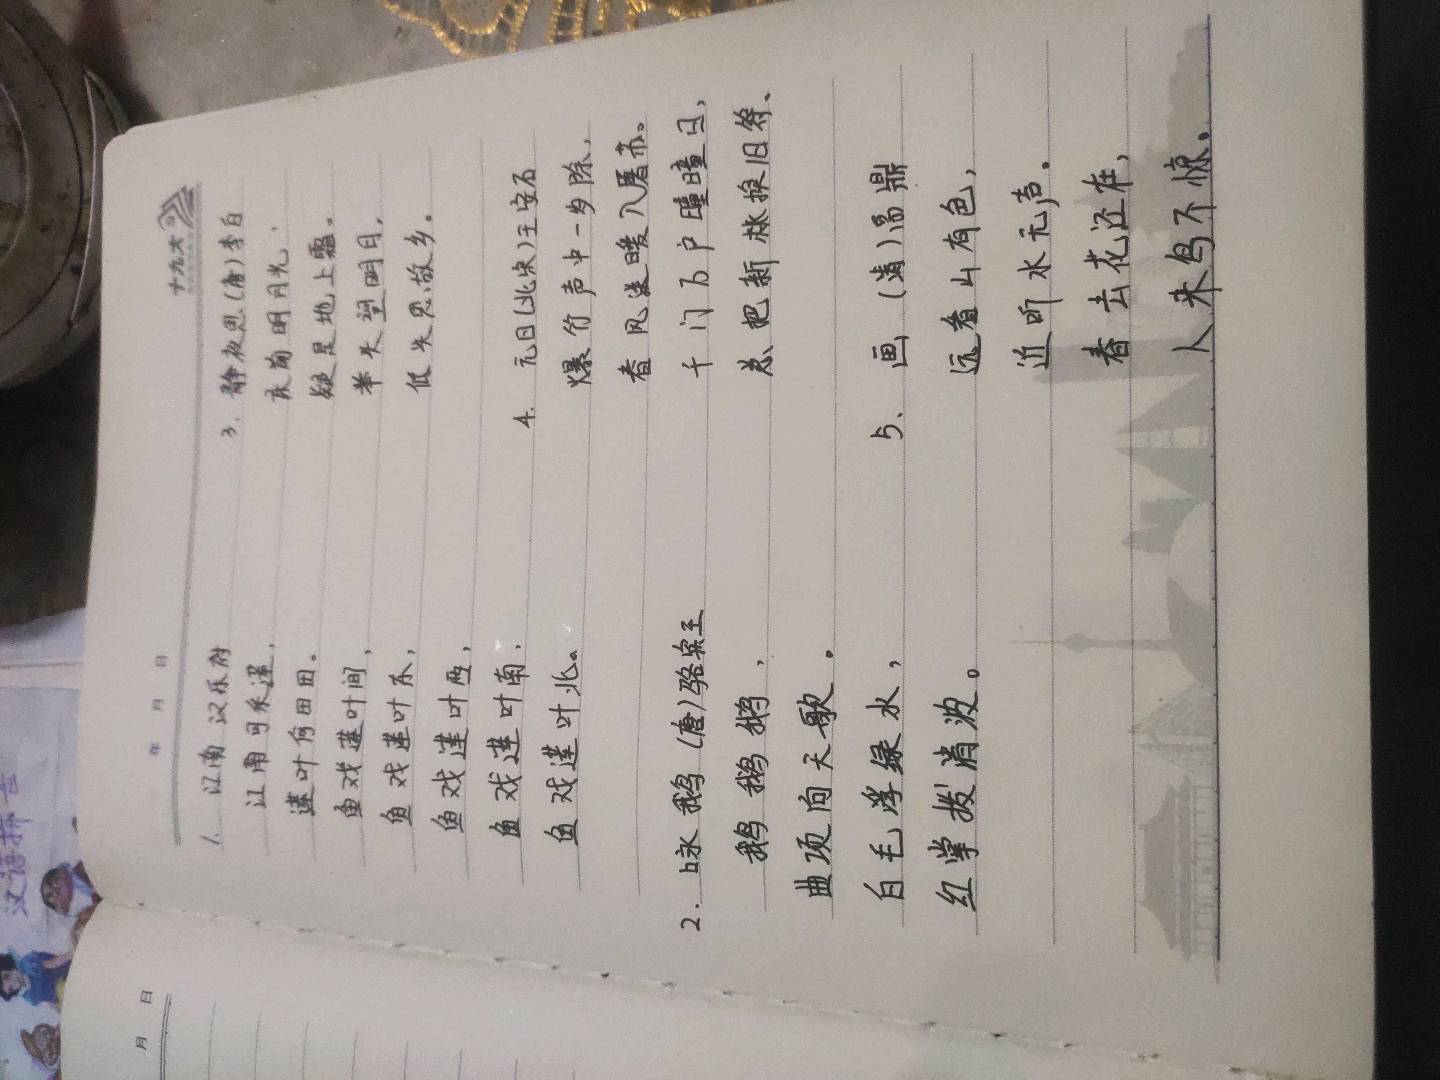 年 月 日
十九大
1. 江南 汉乐府
江南可采莲,
莲叶何田田。
鱼戏莲叶间,
鱼戏莲叶东,
鱼戏莲叶西,
鱼戏莲叶南,
鱼戏莲叶北。
2. 咏鹅 (唐)骆宾王
鹅 鹅 鹅,
曲项向天歌。
白毛浮绿水,
红掌拨清波。
3. 静夜思(唐)李白
床前明月光,
疑是地上霜。
举头望明月,
低头思故乡。
4. 元日(北宋)王安石
爆竹声中一岁除,
春风送暖入屠苏。
千门万户曈曈日,
总把新桃换旧符、
5、画 (清)高鼎
远看山有色,
近听水无声。
春去花还在,
人来鸟不惊。
月 日
汉语拼音